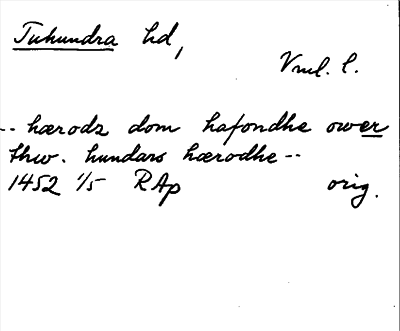 Tuhundra hd,
Vml. l.
-- hærodz dom hafondhe ower
thw. hundars hærodhe --
1452 1/5 RAp orig.